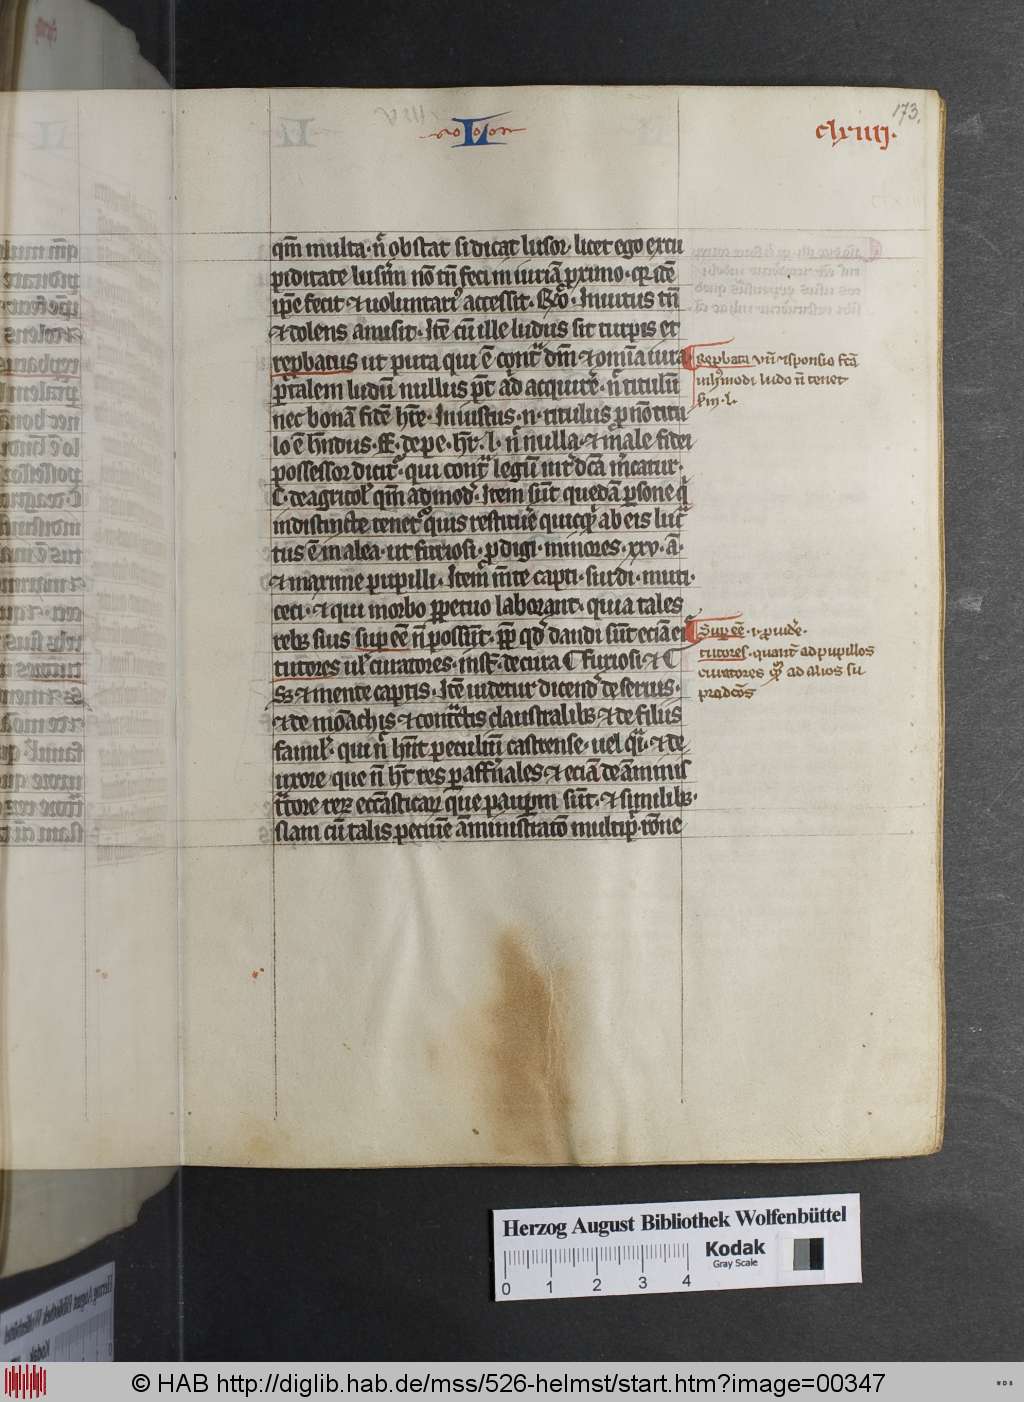 173.
L
clxiiij.
qm̄ multa · n̄ obstat si dicat lusor · licet ego ex cu
piditate lusim̄ nō tn̄ feci in iuriā ꝓximo · qꝛ
ip̄e fecit · ⁊ uoluntariꝰ accessit · Inuitus tn̄
⁊ dolens amisit · Itē cū ille ludus sit turpis et
rep̄batus ut puta qui ē cont̄ dm̄ ⁊ om̄ia iura
ꝑ talem ludū nullus pōt ad acquir̄e · n̄ titulū
nec bonā fidē hr̄e · Iniustus · n · titulus ꝓ nō titu
lo ē hn̄dus · ff · de pe · hr̄ · l · n̄ nulla · ⁊ male fidei
possessor dicit̄ · qui cont̄ legū int̄dc̄a m̄catur ·
C · de agricol̄ qm̄ admod̄ · Item sūt quedā ꝑsone
indistincte tenet̄ quis restitue̅ quicqͥd ab eis luc̄
tus ē in alea · ut furiosi · ꝓdigi · minores · xxv · ā ·
⁊ maxime pupilli · Item mēte capti · surdi · muti ·
ceci · ⁊ qui morbo ꝑpetuo laborant · quia tales
rebꝫ suis sup eē n̄ possūt · ꝓp̄ qd̄ dandi sūt eciā ei
tutores ul̄ curatores · inst̄ · de cura C furiosi · ⁊ C
Sꝫ ⁊ mente captis · Itē uidetur dicend̄ de seruis ·
⁊ de mōachis ⁊ claustralibꝫ ⁊ de filiis
famil̄ · qui n̄ hn̄t peculiū castrense · uel q̄i · ⁊ de
uxore · que n̄ ht̄ res paraff̄nales · ⁊ eciā de āminis
t̄tore reꝝ ecc̄asticaꝝ que pauꝑm sūt · ⁊ similibꝫ ·
Nam cū talis pecunie āministratō multiplꝛ rōne
Rep̄bata vn̄ ⁊ sponsio fcā
ludo n̄ tenet
Sup eē · ꝓuide ·
tutores · quant̄ ad pupillos
curatores ad alios su
pradc̄os
Herzog August Bibliothek Wolfenbüttel
Kodak
Gray Scale
0 1 2 3 4
© HAB http://diglib.hab.de/mss/526-helmst/start.htm?image=00347